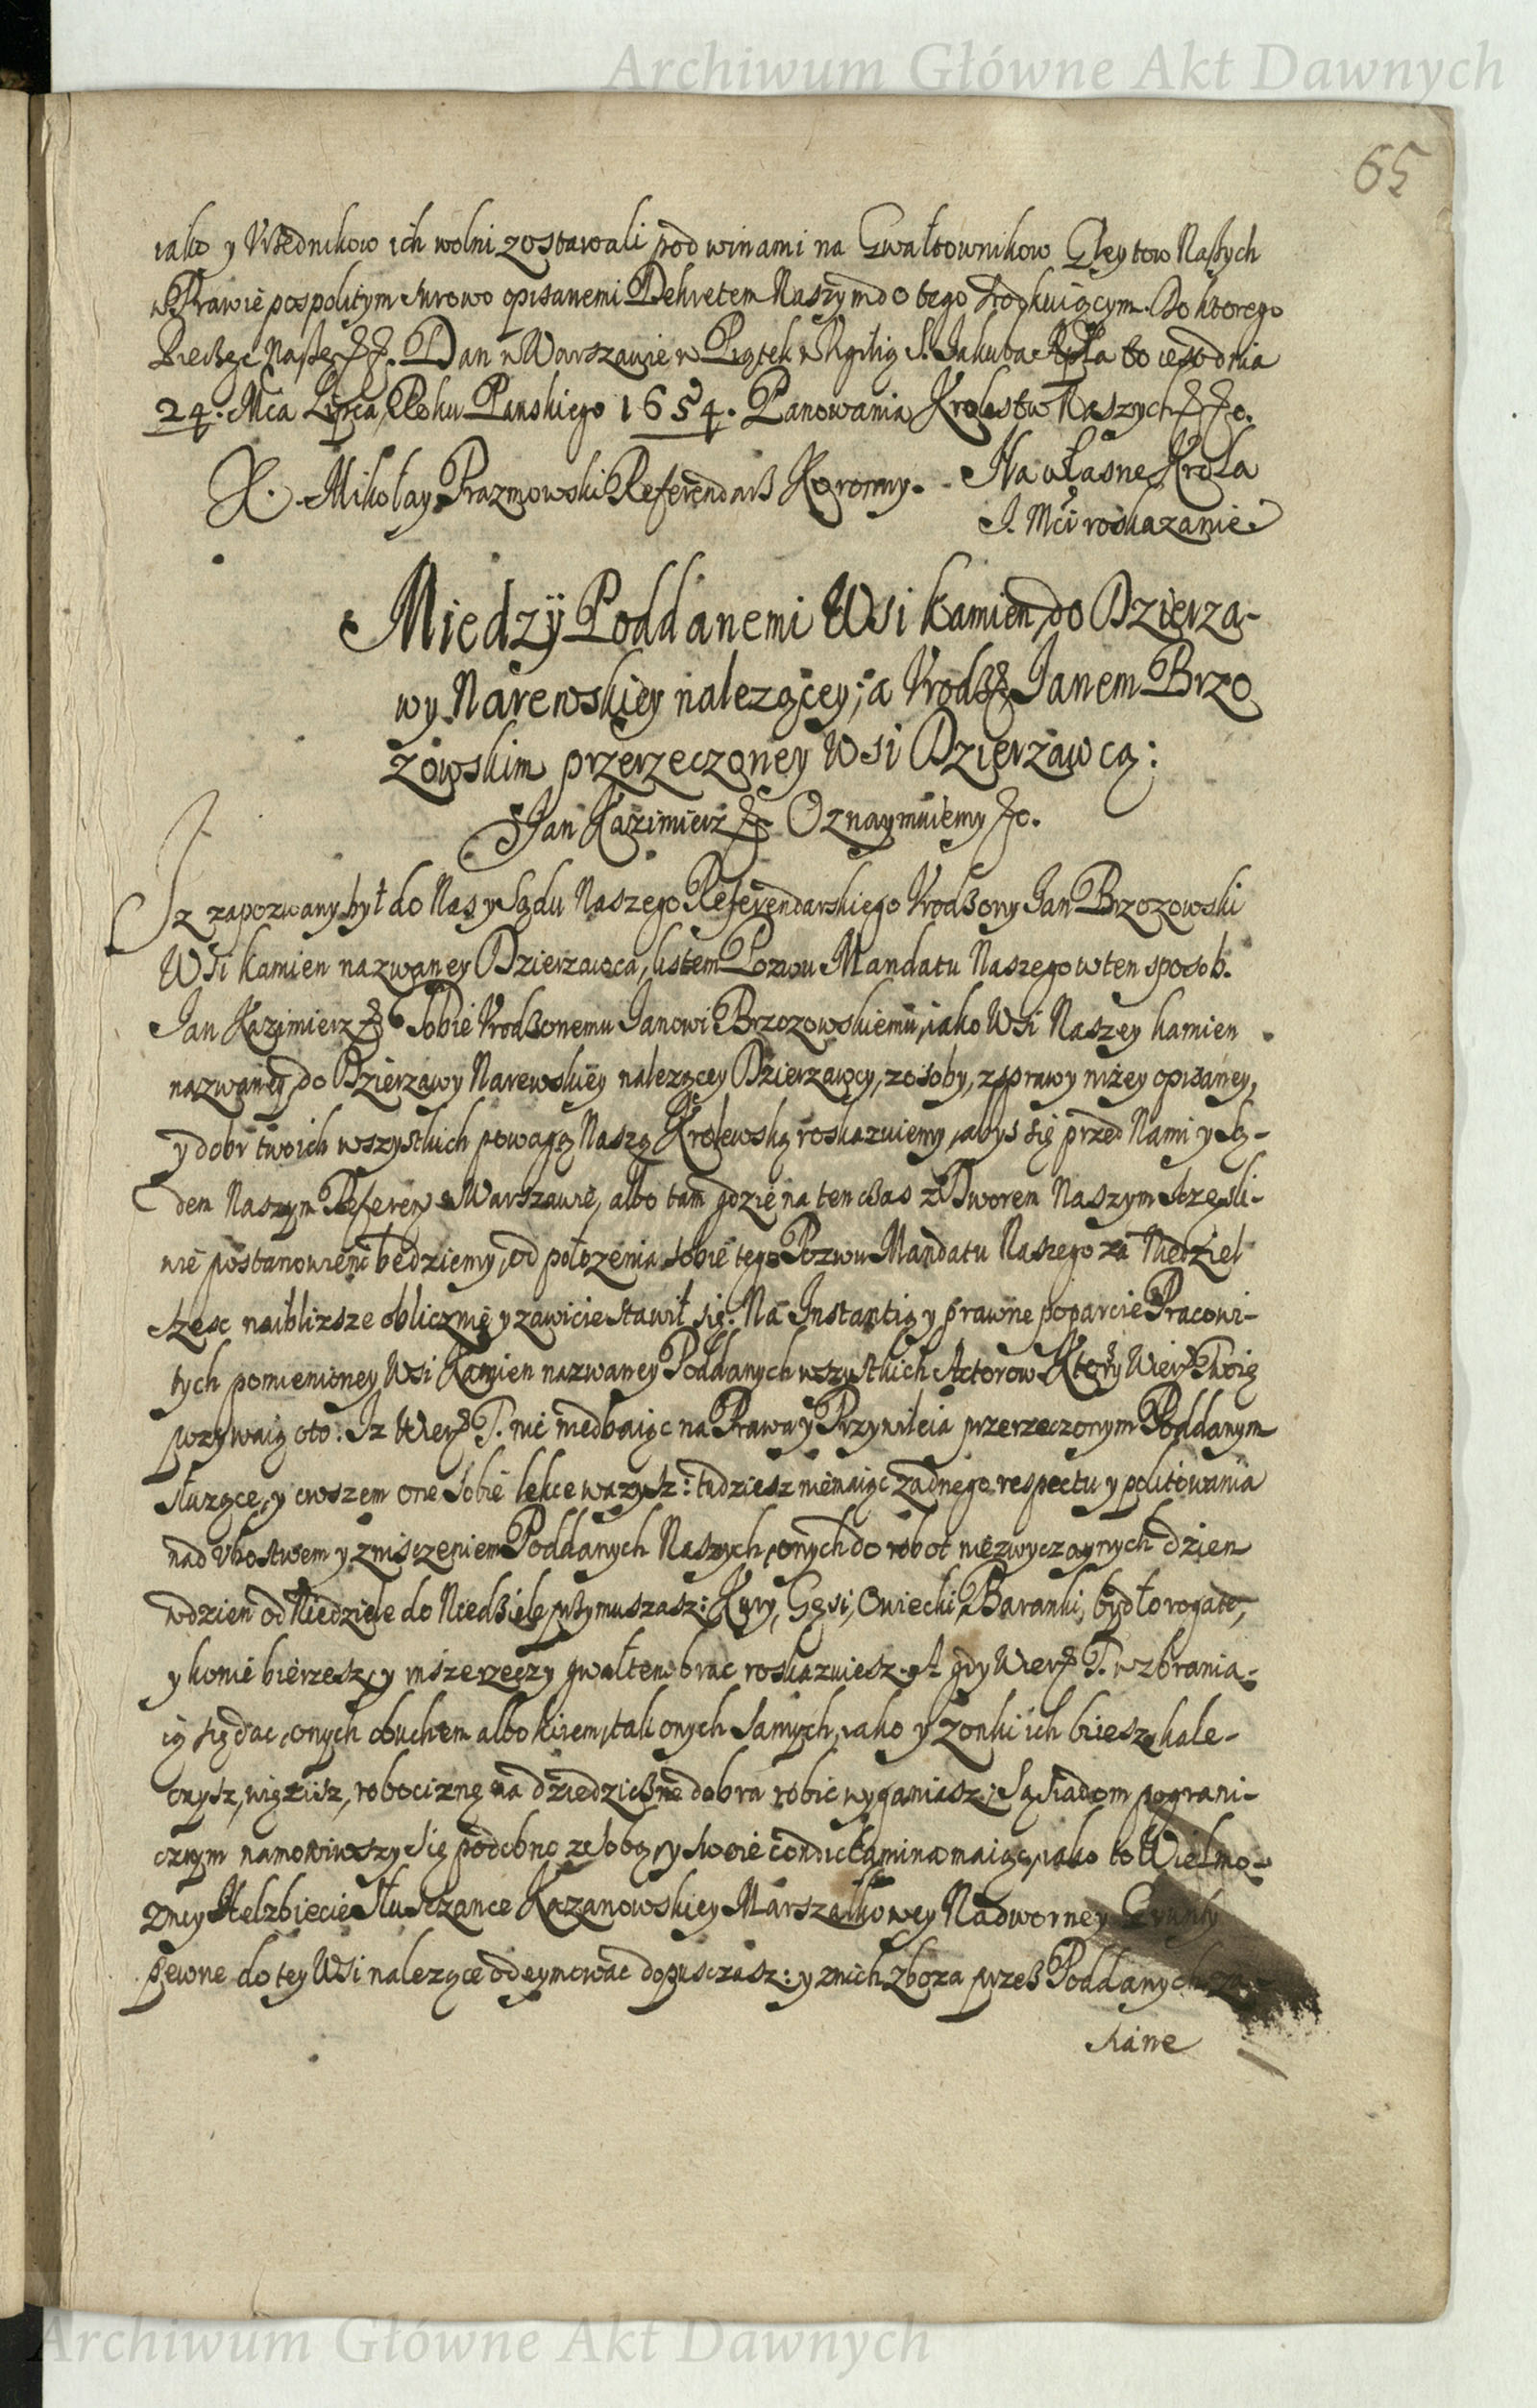 Archiwum Główne Akt Dawnych
65
iako y Vrzednikow ich wolni zostawali pod winami na Gwałtownikow Gleytow Naszych
w Prawie pospolitym surowo opisanemi Dekretem Naszym do tego srodkuiącym. Do ktorego
Pieczęć Nasza &&. Dan w Warszawie w Piątek w Wigilią S. Iakuba Apła to iest dnia
24. Mca Lipca, Roku Panskiego 1654. Panowania Krolestw Naszych &&c.
X. Mikołay Prazmowski Referendarz Koronny. Na własne Krola
I. Mci roskazanie
Miedzy Poddanemi Wsi Kamien, do Dzierza-
wy Narewskiey nalezącey; a Vrodz Ianem Brzo
zowskim przerzeczoney Wsi Dzierzawcą:
Ian Kazimierz & Oznaymuiemy &c.
Iz zapozwany był do Nas y Sądu Naszego Referendarskiego Vrodzony Ian Brzozowski
Wsi Kamien nazwaney Dzierzawca, listem Pozwu Mandatu Naszego w ten sposob.
Ian Kazimierz & Tobie Vrodzonemu Ianowi Brzozowskiemu, iako Wsi Naszey Kamien
nazwaney, do Dzierzawy Narewskiey nalezącey Dzierzawcy, z osoby, z sprawy nizey opisaney,
y dobr twoich wszystkich powagą Naszą Krolewską roskazuiemy, abys się przed Nami y Są-
dem Naszym Referen w Warszawie, albo tam gdzie na ten czas z Dworem Naszym szczęsli-
wie postanowieni będziemy, od położenia tobie tego Pozwu Mandatu Naszego za Niedziel
szesc naiblizsze oblicznie y zawicie stawił się. Na Instantią y prawne poparcie Pracowi-
tych pomienioney Wsi Kamien nazwaney Poddanych wszystkich Actorow Ktorzy Wier Twoię
pozywaią oto: Iz Wier T. nic niedbaiąc na Prawa y Przywileia przerzeczonym Poddanym
służące, y owszem one sobie lekce wazysz: tudziesz niemaiąc zadnego respectu y politowania
nad vbostwem y zniszczeniem Poddanych Naszych, onych do robot niezwyczaynych dzien
w dzien od Niedziele do Niedziele przymuszasz: Kury, Gęsi, Owieczki, Baranki, bydło rogate,
y konie bierzesz, y insze rzeczy gwałtem brac roskazuiesz. A gdy Wier T. wzbrania-
ią się dac, onych obuchem albo kiiem, tak onych samych, iako y zonki ich biiesz, kale-
czysz, więzisz, robociznę na dziedziczne dobra robic wyganiasz: Sąsiadom pograni-
cznym namowiwszy się podobno ze sobą, y swoie condictamina maiąc, iako to Wielmo-
zney Helzbiecie Słuszczance Kazanowskiey Marszałkowey Nadworney Grunty
pewne do tey Wsi nalezące odeymować dopusczasz: y z nich zboza przez Poddanych za-
siane
Archiwum Główne Akt Dawnych